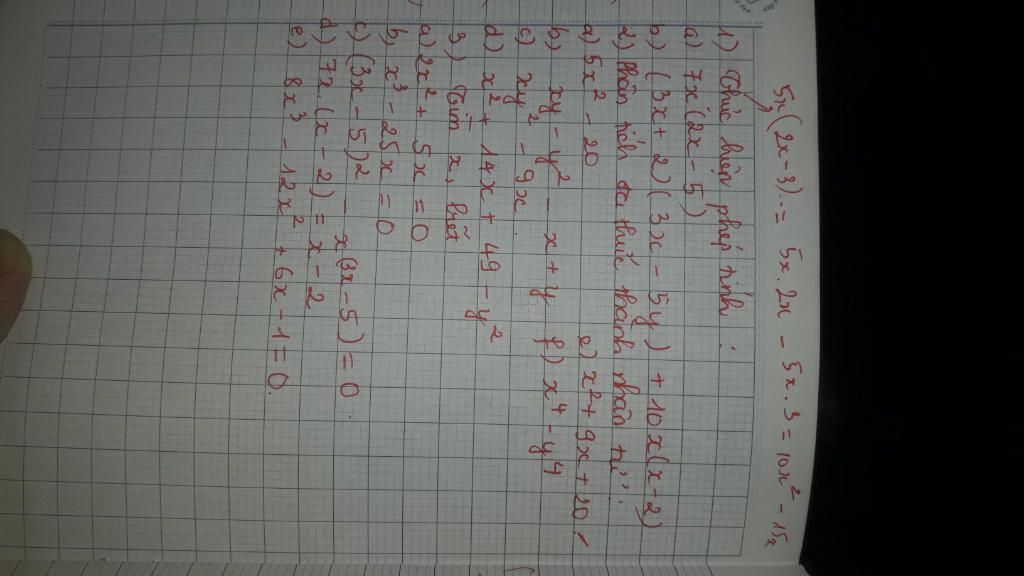 5x(2x-3) = 5x.2x - 5x.3 = 10x² - 15x
1) Thực hiện phép tính:
a) 7x(2x - 5)
b) (3x + 2)(3x - 5y) + 10x(x - 2)
2) Phân tích đa thức thành nhân tử:
a) 5x² - 20 e) x² + 9x + 20
b) xy - y² - x + y f) x⁴ - y⁴
c) xy² - 9x
d) x² + 14x + 49 - y²
3) Tìm x, biết
a) 2x² + 5x = 0
b, x³ - 25x = 0
c) (3x - 5)² - x(3x - 5) = 0.
d) 7x(x - 2) = x - 2
e) 8x³ - 12x² + 6x - 1 = 0.